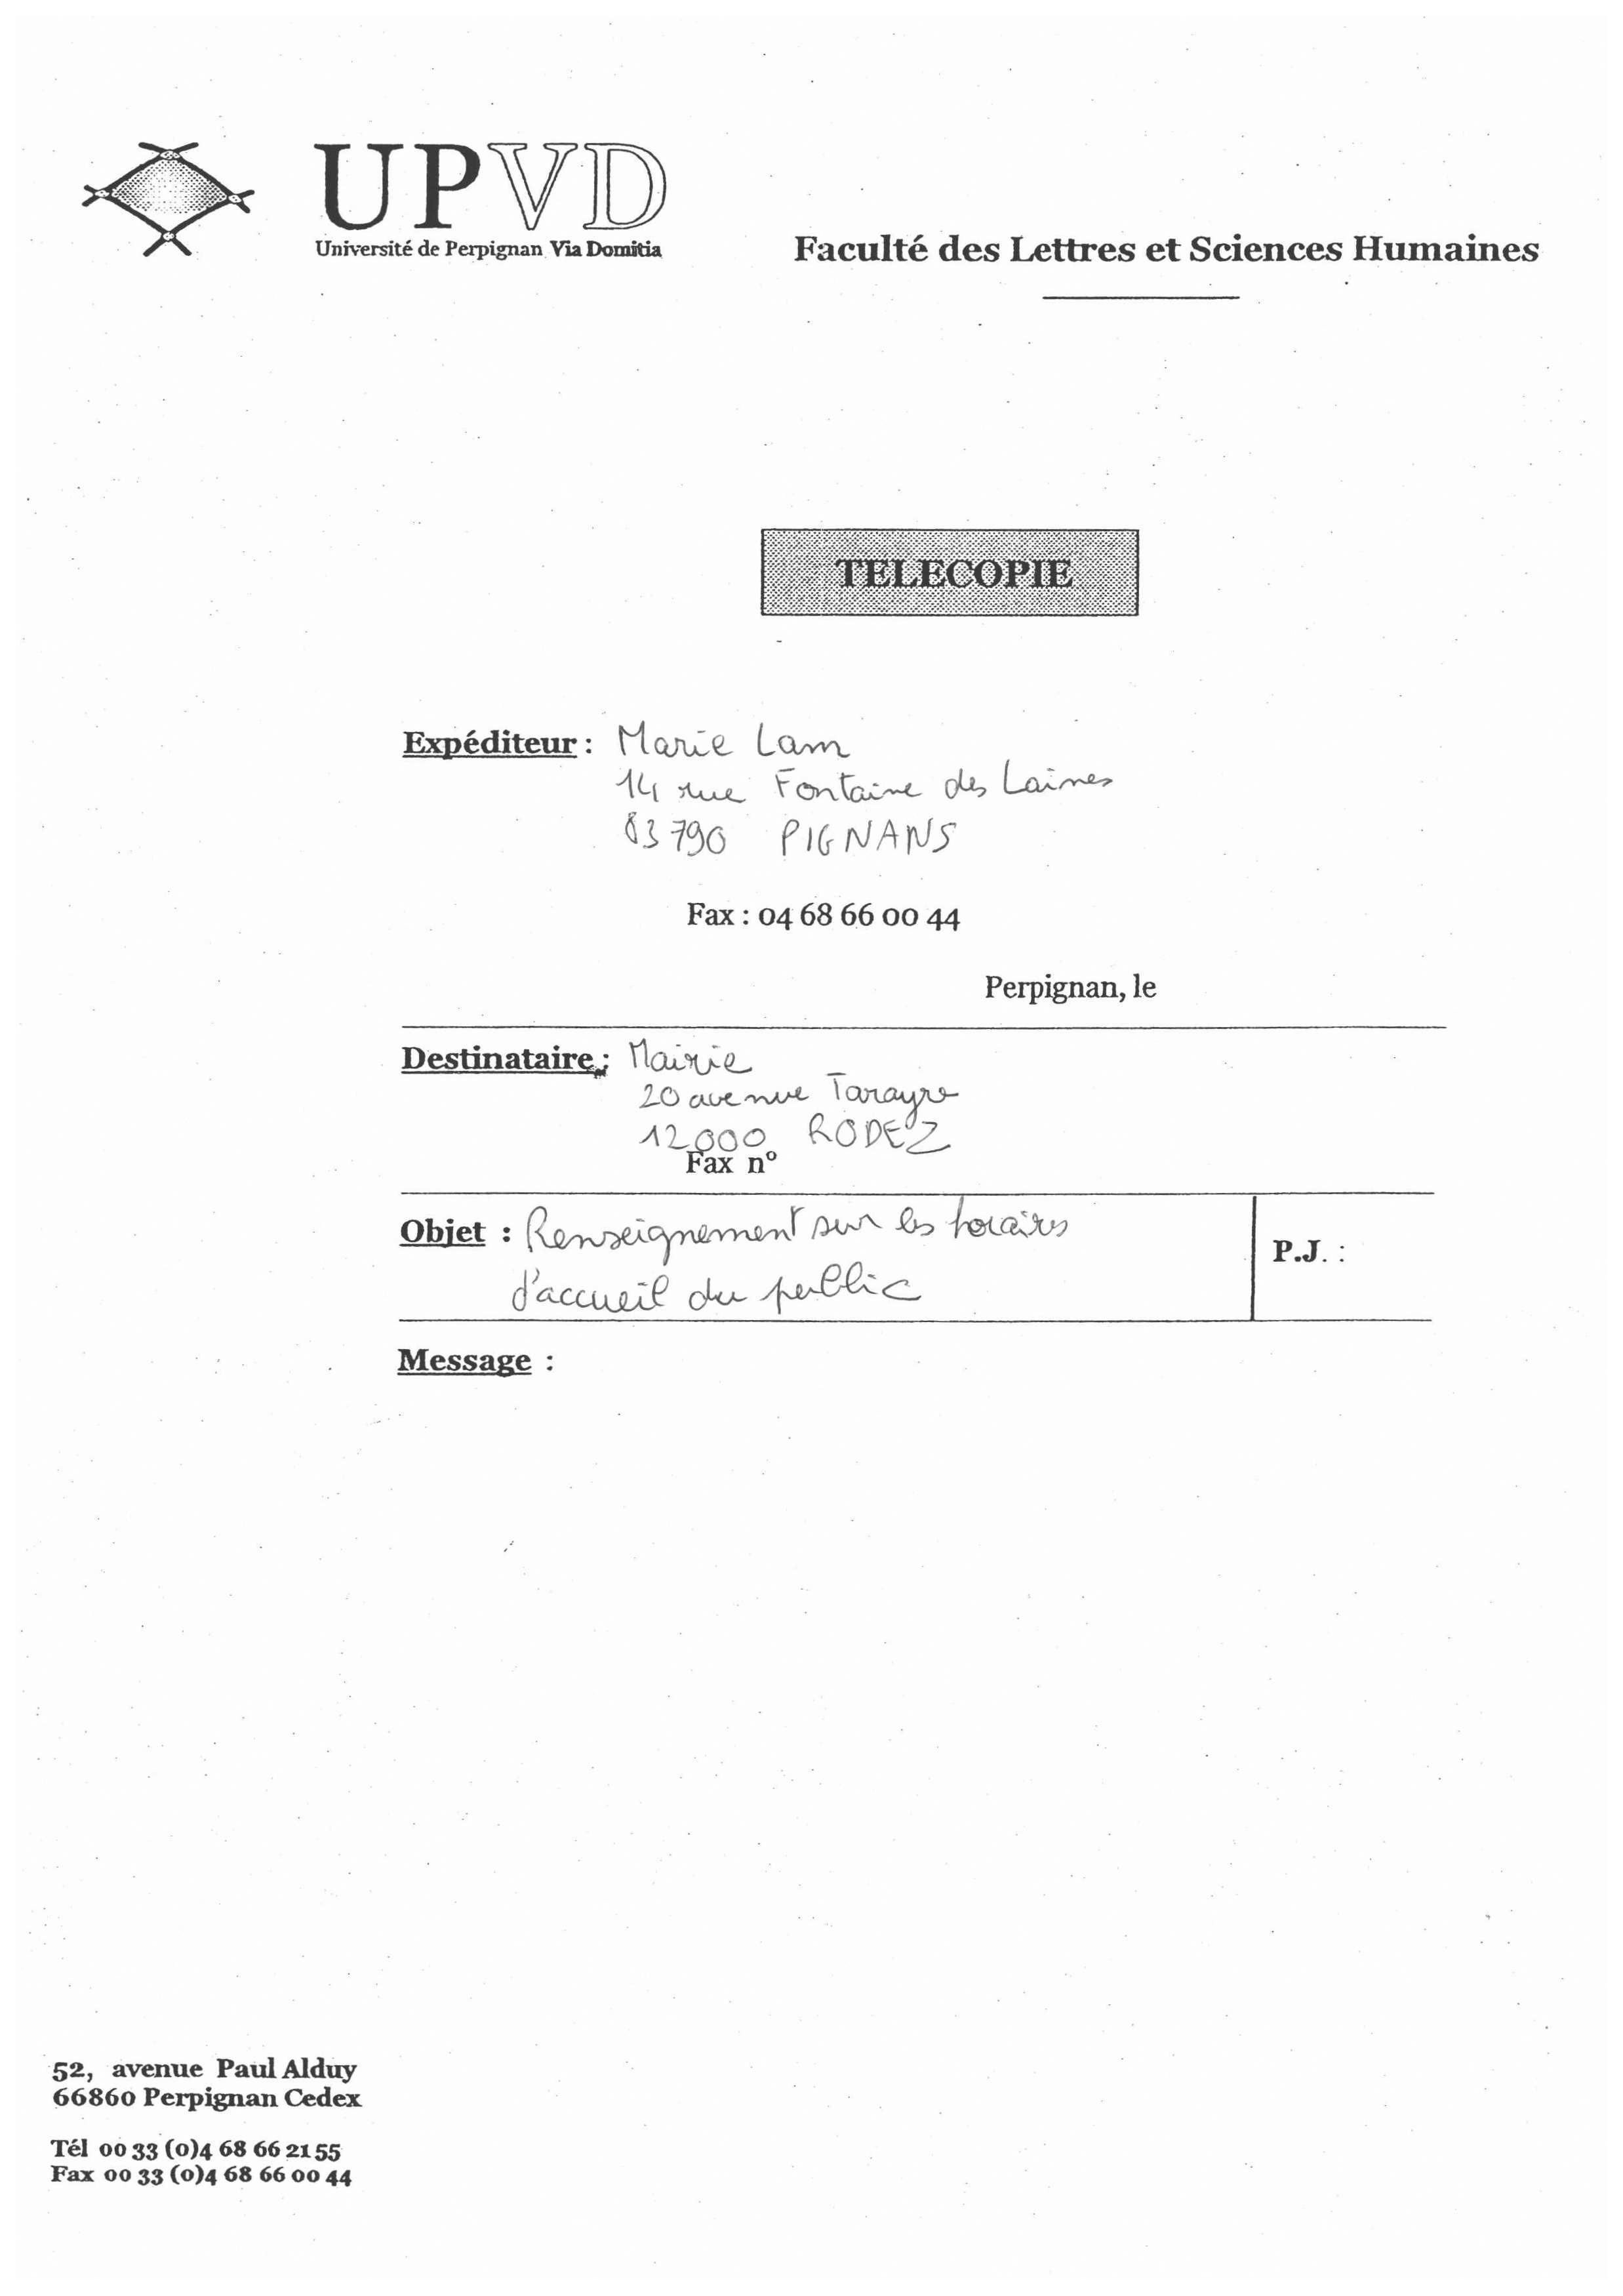 UPVD
Université de Perpignan Via Domitia
Faculté des Lettres et Sciences Humaines
TELECOPIE
Expéditeur : Marie Lam
14 rue Fontaine des Laines
83790 PIGNANS
Fax : 04 68 66 00 44
Perpignan, le
Destinataire : Mairie
20 avenue Tarayre
12000 RODEZ
Fax n°
Objet : Renseignement sur les horaires
d'accueil du public
P.J. :
Message :
52, avenue Paul Alduy
66860 Perpignan Cedex
Tél 00 33 (0)4 68 66 21 55
Fax 00 33 (0)4 68 66 00 44